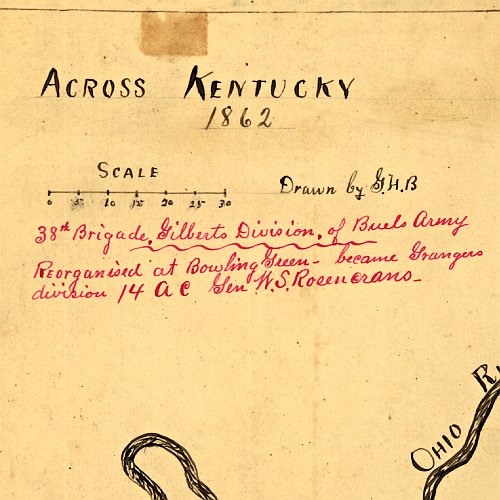 ACROSS KENTUCKY
1862
SCALE
0 5 10 15 20 25 30
Drawn by G.H.B
38th Brigade, Gilberts Division, of Buels Army
Reorganised at Bowling Green - became Grangers
division 14 A C Gen W.S. Rosencrans -
OHIO RI